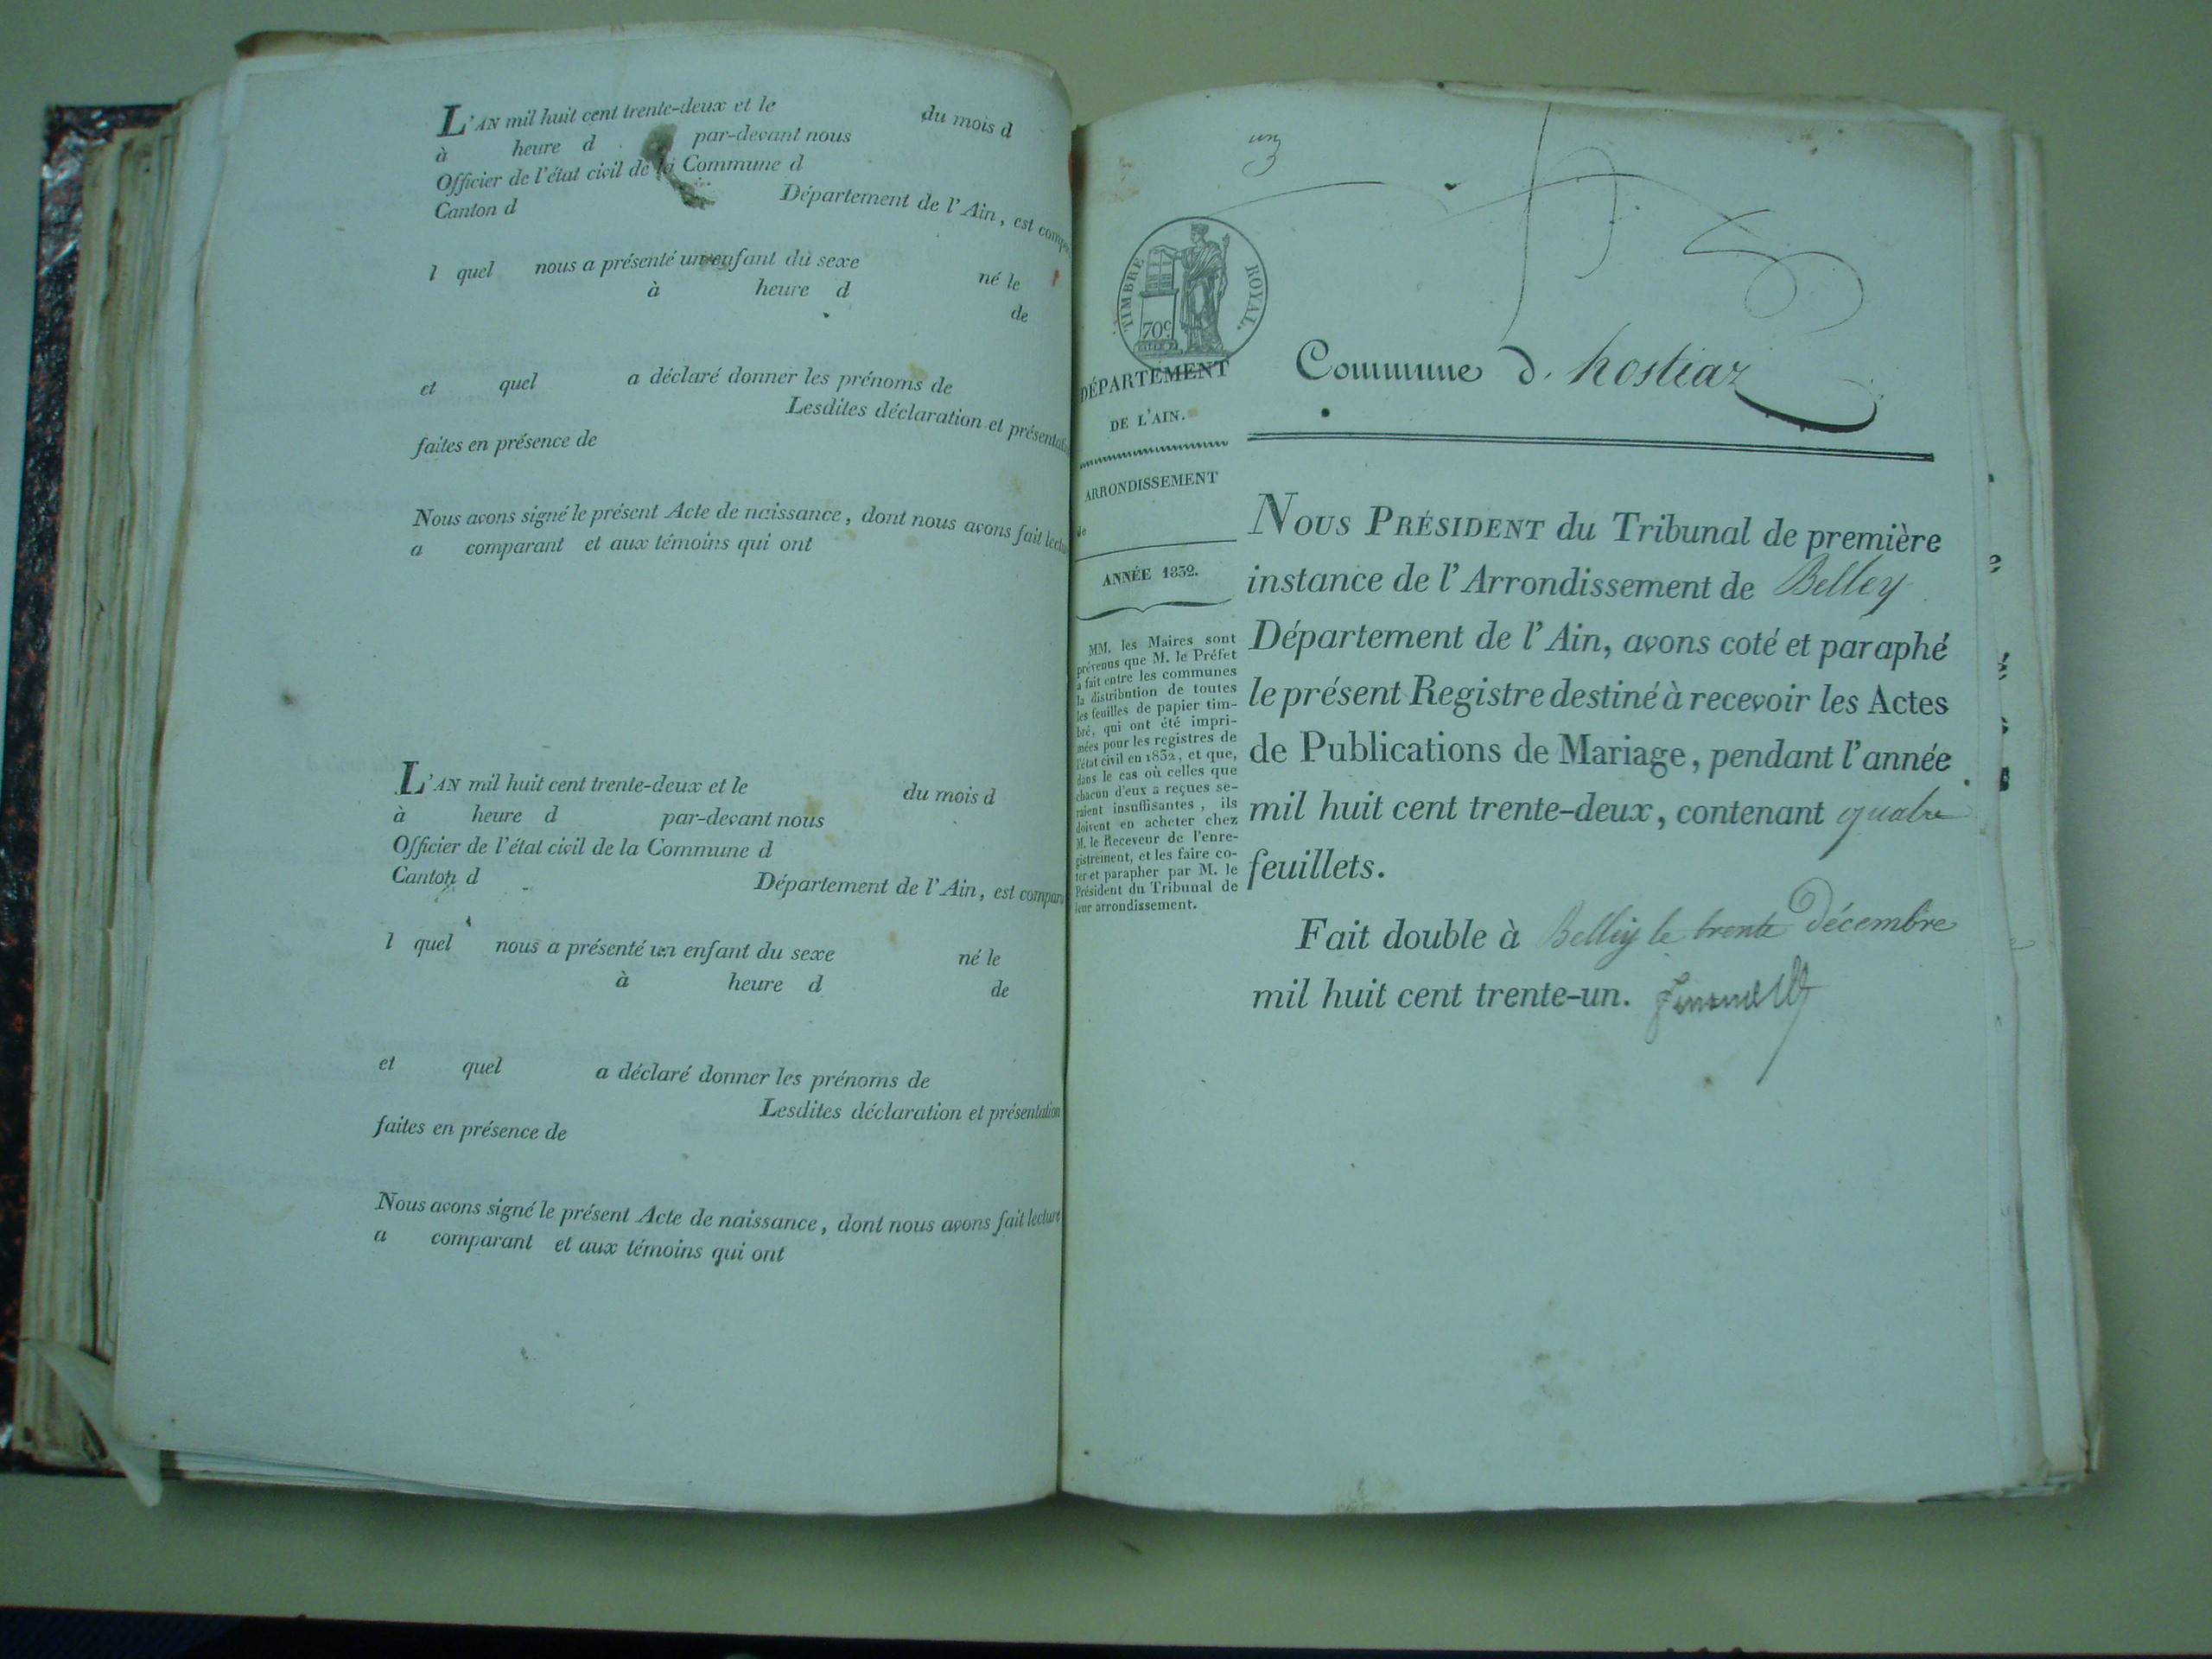 L'AN mil huit cent trente-deux et le du mois d
à heure d par-devant nous
Officier de l'état civil de la Commune d
Canton d Département de l'Ain, est compa
l quel nous a présenté un enfant du sexe né le
à heure d
de
et quel a déclaré donner les prénoms de
Lesdites déclaration et présentat
faites en présence de
Nous avons signé le présent Acte de naissance, dont nous avons fait lectu
a comparant et aux témoins qui ont
L'AN mil huit cent trente-deux et le du mois d
à heure d par-devant nous
Officier de l'état civil de la Commune d
Canton d Département de l'Ain, est comparu
l quel nous a présenté un enfant du sexe né le
à heure d de
et quel a déclaré donner les prénoms de
Lesdites déclaration et présentation
faites en présence de
Nous avons signé le présent Acte de naissance, dont nous avons fait lecture
a comparant et aux témoins qui ont
un
TIMBRE ROYAL.
70c
DÉPARTEMENT
DE L'AIN.
ARRONDISSEMENT
de
ANNÉE 1832.
MM. les Maires sont
prévenus que M. le Préfet
a fait entre les communes
la distribution de toutes
les feuilles de papier tim-
bré, qui ont été impri-
mées pour les registres de
l'état civil en 1832, et que,
dans le cas où celles que
chacun d'eux a reçues se-
raient insuffisantes, ils
doivent en acheter chez
M. le Receveur de l'enre-
gistrement, et les faire co-
ter et parapher par M. le
Président du Tribunal de
leur arrondissement.
Commune d. hostiaz
NOUS PRÉSIDENT du Tribunal de première
instance de l'Arrondissement de Belley
Département de l'Ain, avons coté et paraphé
le présent Registre destiné à recevoir les Actes
de Publications de Mariage, pendant l'année
mil huit cent trente-deux, contenant quatre
feuillets.
Fait double à Belley le trente Décembre
mil huit cent trente-un.